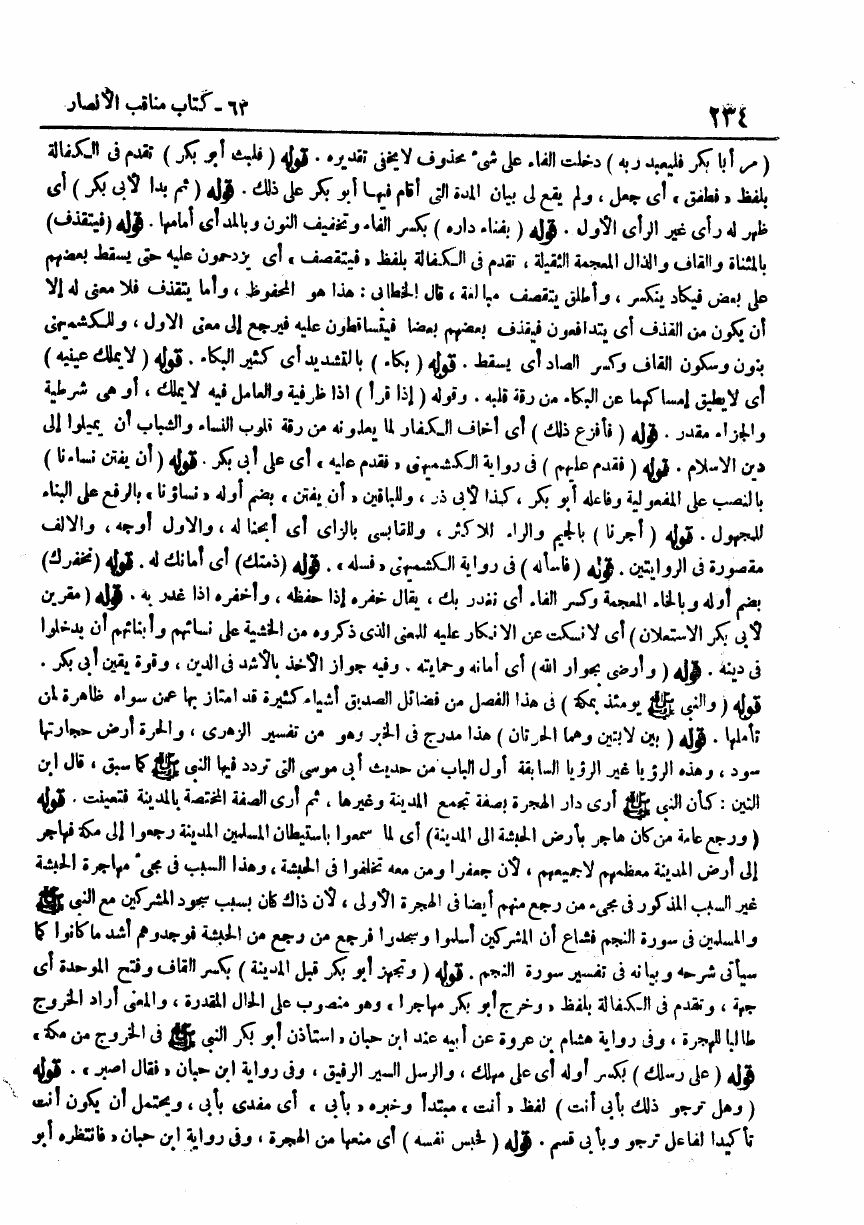 ٢٣٤
٦٣ - كتاب مناقب الأنصار
( مر أبا بكر فليعبد ربه ) دخلت الفاء على شىء محذوف لا يخفى تقديره . قوله ( فلبث أبو بكر ) تقدم فى الكفالة
بلفظ « فطفق » أى جعل ، ولم يقع لى بيان المدة التى أقام فيها أبو بكر على ذلك . قوله ( ثم بدا لأبى بكر ) أى
ظهر له رأى غير الرأى الأول . قوله ( بفناء داره ) بكسر الفاء وتخفيف النون وبالمد أى أمامها . قوله (فيتقذف)
بالمثناة والقاف والذال المعجمة الثقيلة ، تقدم فى الكفالة بلفظ « فيتقصف » أى يزدحمون عليه حتى يسقط بعضهم
على بعض فيكاد ينكسر ، وأطلق يتقصف مبالغة ، قال الخطابى : هذا هو المحفوظ ، وأما يتقذف فلا معنى له إلا
أن يكون من القذف أى يتدافعون فيقذف بعضهم بعضا فيتساقطون عليه فيرجع إلى معنى الاول ، وللكشميهنى
بنون وسكون القاف وكسر الصاد أى يسقط . قوله ( بكاء ) بالتشديد أى كثير البكاء . قوله ( لا يملك عينيه )
أى لا يطيق إمساكهما عن البكاء من رقة قلبه . وقوله ( إذا قرأ ) اذا ظرفية والعامل فيه لا يملك ، أو هى شرطية
والجزاء مقدر . قوله ( فأفزع ذلك ) أى أخاف الكفار لما يعلمونه من رقة قلوب النساء والشباب أن يميلوا إلى
دين الاسلام . قوله ( فقدم عليهم ) فى رواية الكشميهنى « فقدم عليه » أى على أبى بكر . قوله ( أن يفتن نساءنا )
بالنصب على المفعولية وفاعله أبو بكر ، كذا لأبى ذر ، وللباقين « أن يفتن » بضم أوله « نساؤنا » بالرفع على البناء
للمجهول . قوله ( أجرنا ) بالجيم والراء للاكثر ، وللقابسى بالزاى أى أبحنا له ، والاول أوجه ، والالف
مقصورة فى الروايتين . قوله ( فاسأله ) فى رواية الكشميهنى « فسله » . قوله (ذمتك) أى أمانك له . قوله (نخفرك)
بضم أوله وبالخاء المعجمة وكسر الفاء أى نغدر بك ، يقال خفره إذا حفظه ، وأخفره اذا غدر به . قوله ( مقرين
لأبى بكر الاستعلان ) أى لا نسكت عن الانكار عليه للمعنى الذى ذكروه من الخشية على نسائهم وأبنائهم أن يدخلوا
فى دينه . قوله ( وأرضى بجوار الله) أى أمانه وحمايته . وفيه جواز الأخذ بالأشد فى الدين ، وقوة يقين أبى بكر .
قوله ( والنبى ﷺ يومئذ بمكة ) فى هذا الفصل من فضائل الصديق أشياء كثيرة قد امتاز بها عمن سواه ظاهرة لمن
تأملها . قوله ( بين لابتين وهما الحرتان ) هذا مدرج فى الخبر وهو من تفسير الزهرى ، والحرة أرض حجارتها
سود ، وهذه الرؤيا غير الرؤيا السابقة أول الباب من حديث أبى موسى التى تردد فيها النبى ﷺ كما سبق ، قال ابن
التين : كأن النبى ﷺ أرى دار الهجرة بصفة تجمع المدينة وغيرها ، ثم أرى الصفة المختصة بالمدينة فتعينت . قوله
( ورجع عامة من كان هاجر بأرض الحبشة الى المدينة) أى لما سمعوا باستيطان المسلمين المدينة رجعوا إلى مكة فهاجر
إلى أرض المدينة معظمهم لا جميعهم ، لأن جعفرا ومن معه تخلفوا فى الحبشة ، وهذا السبب فى مجىء مهاجرة الحبشة
غير السبب المذكور فى مجىء من رجع منهم أيضا فى الهجرة الأولى ، لأن ذاك كان بسبب سجود المشركين مع النبى ﷺ
والمسلمين فى سورة النجم فشاع أن المشركين أسلموا وسجدوا فرجع من رجع من الحبشة فوجدوهم أشد ما كانوا كما
سيأتى شرحه وبيانه فى تفسير سورة النجم . قوله ( وتجهز أبو بكر قبل المدينة ) بكسر القاف وفتح الموحدة أى
جهة ، وتقدم فى الكفالة بلفظ « وخرج أبو بكر مهاجرا » وهو منصوب على الحال المقدرة ، والمعنى أراد الخروج
طالبا للهجرة ، وفى رواية هشام بن عروة عن أبيه عند ابن حبان « استأذن أبو بكر النبى ﷺ فى الخروج من مكة »
قوله ( على رسلك ) بكسر أوله أى على مهلك ، والرسل السير الرفيق ، وفى رواية ابن حبان « فقال اصبر » . قوله
( وهل ترجو ذلك بأبى أنت ) لفظ « أنت » مبتدأ وخبره « بأبى » أى مفدى بأبى ، ويحتمل أن يكون أنت
تأكيدا لفاعل ترجو وبأبى قسم . قوله ( فحبس نفسه ) أى منعها من الهجرة ، وفى رواية ابن حبان « فانتظره أبو